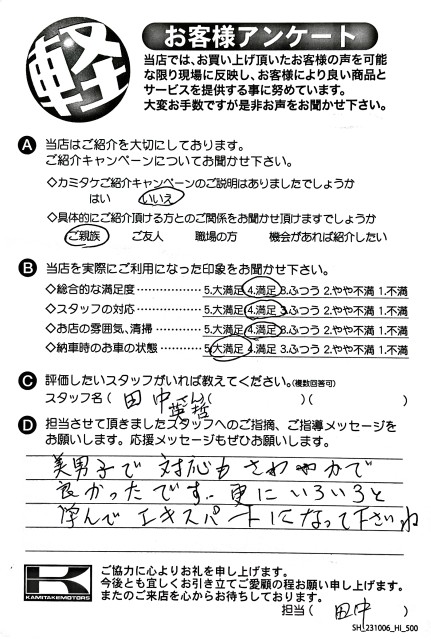 軽
お客様アンケート
当店では、お買い上げ頂いたお客様の声を可能
な限り現場に反映し、お客様により良い商品と
サービスを提供する事に努めています。
大変お手数ですが是非お声をお聞かせ下さい。
A 当店はご紹介を大切にしております。
ご紹介キャンペーンについてお聞かせ下さい。
◇カミタケご紹介キャンペーンのご説明はありましたでしょうか
はい いいえ
◇具体的にご紹介頂ける方とのご関係をお聞かせ頂けますでしょうか
ご親族 ご友人 職場の方 機会があれば紹介したい
B 当店を実際にご利用になった印象をお聞かせ下さい。
◇総合的な満足度 5.大満足 4.満足 3.ふつう 2.やや不満 1.不満
◇スタッフの対応 5.大満足 4.満足 3.ふつう 2.やや不満 1.不満
◇お店の雰囲気、清掃 5.大満足 4.満足 3.ふつう 2.やや不満 1.不満
◇納車時のお車の状態 5.大満足 4.満足 3.ふつう 2.やや不満 1.不満
C 評価したいスタッフがいれば教えてください。(複数回答可)
スタッフ名 ( 田中さん )( )( )
英哲
D 担当させて頂きましたスタッフへのご指摘、ご指導メッセージを
お願いします。応援メッセージもぜひお願いします。
美男子で対応もさわやかで
良かったです。更にいろいろと
学んでエキスパートになって下さいね
K
KAMITAKEMOTORS
ご協力に心よりお礼を申し上げます。
今後とも宜しくお引き立てご愛顧の程お願い申し上げます。
またのご来店を心からお待ちしております。
担当 ( 田中 )
SH_231006_HI_500